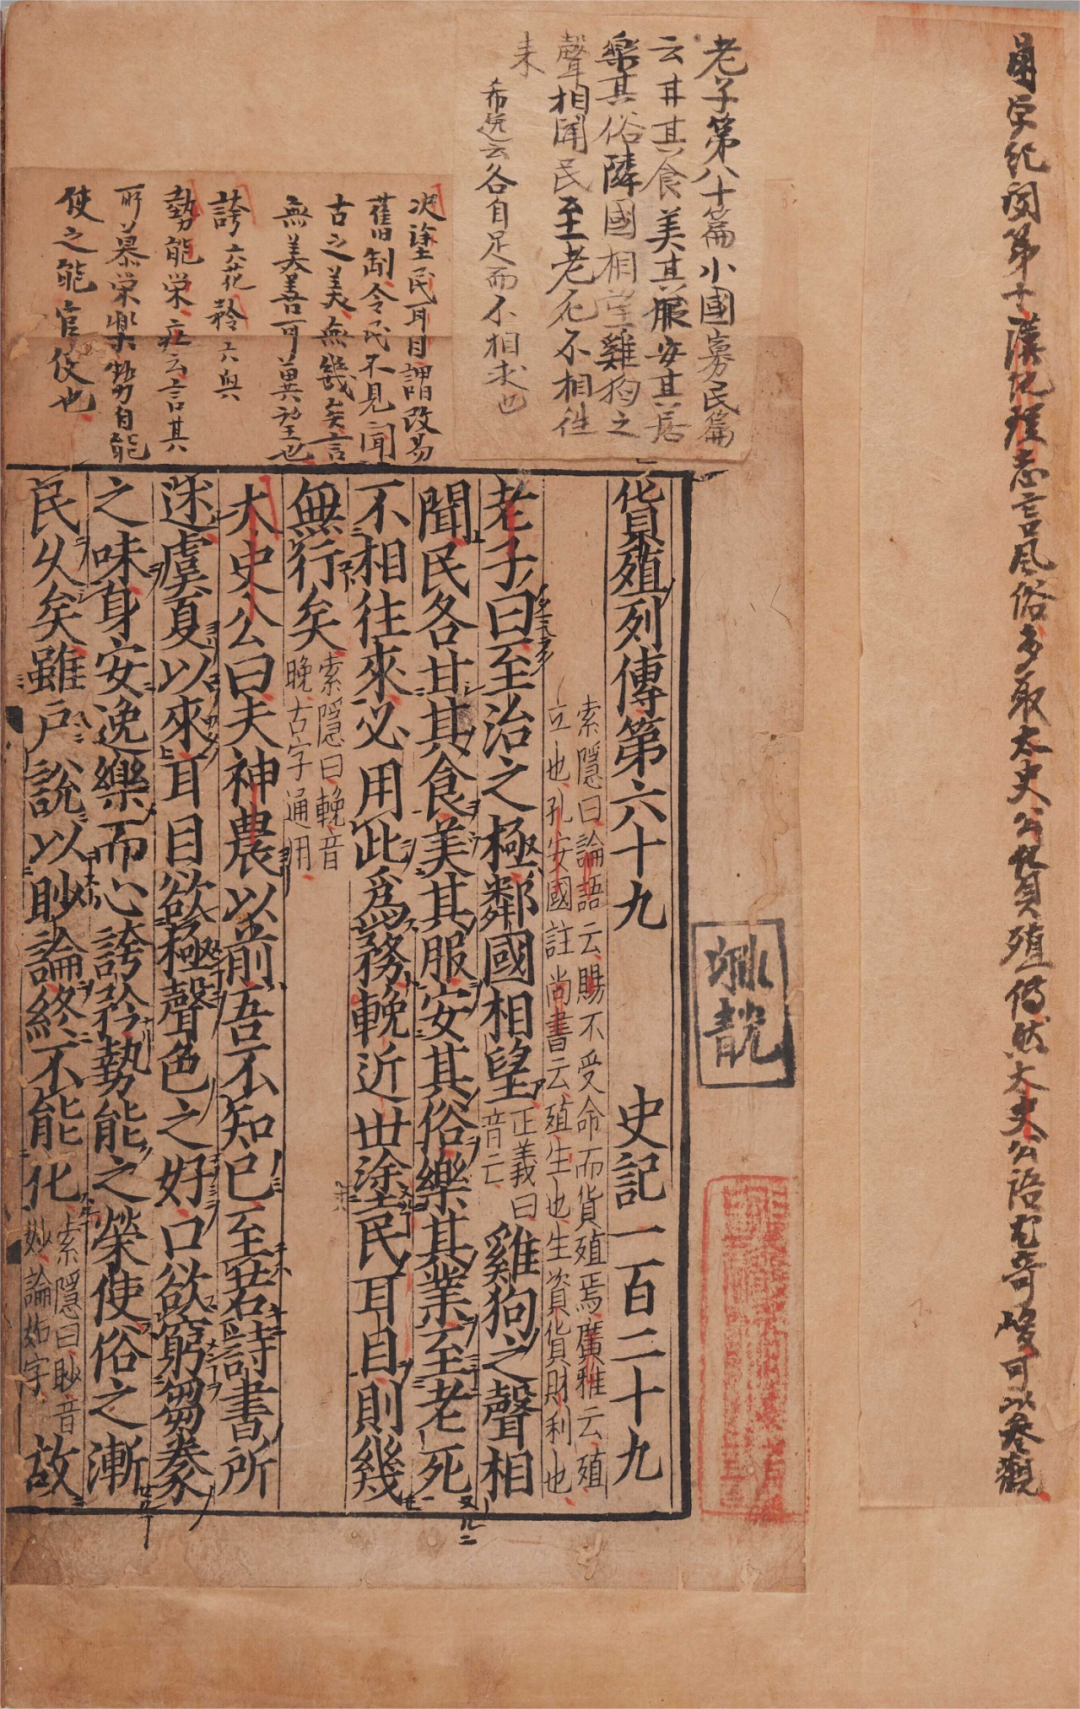 困学紀聞第十漢地理志言風俗多取太史公貨殖傳然太史公語尤奇峻可以參觀
老子第八十篇小國寡民篇
云甘其食美其服安其居
樂其俗隣國相望雞狗之
聲相聞民至老死不相往
来
希逸云各自足而不相求也
塗民耳目謂改易
舊制令民不見聞
古之美無幾矣言
無美善可異望也
誇六花矜六與
勢能栄 云言其
所慕栄樂勢自能
使之能官使也
貨殖列傳第六十九 史記一百二十九
索隱曰論語云賜不受命而貨殖焉廣雅云殖
立也孔安國註尚書云殖生也生資貨財利也
老子曰至治之極鄰國相望正義曰音亡雞狗之聲相
聞民各甘其食美其服安其俗樂其業至老死
不相往來必用此爲務輓近世塗民耳目則幾
無行矣索隱曰輓音晚古字通用
太史公曰夫神農以前吾不知已至若詩書所
述虞夏以來耳目欲極聲色之好口欲窮芻豢
之味身安逸樂而心誇矜勢能之榮使俗之漸
民久矣雖戶說以眇論終不能化索隱曰眇音妙論如字故